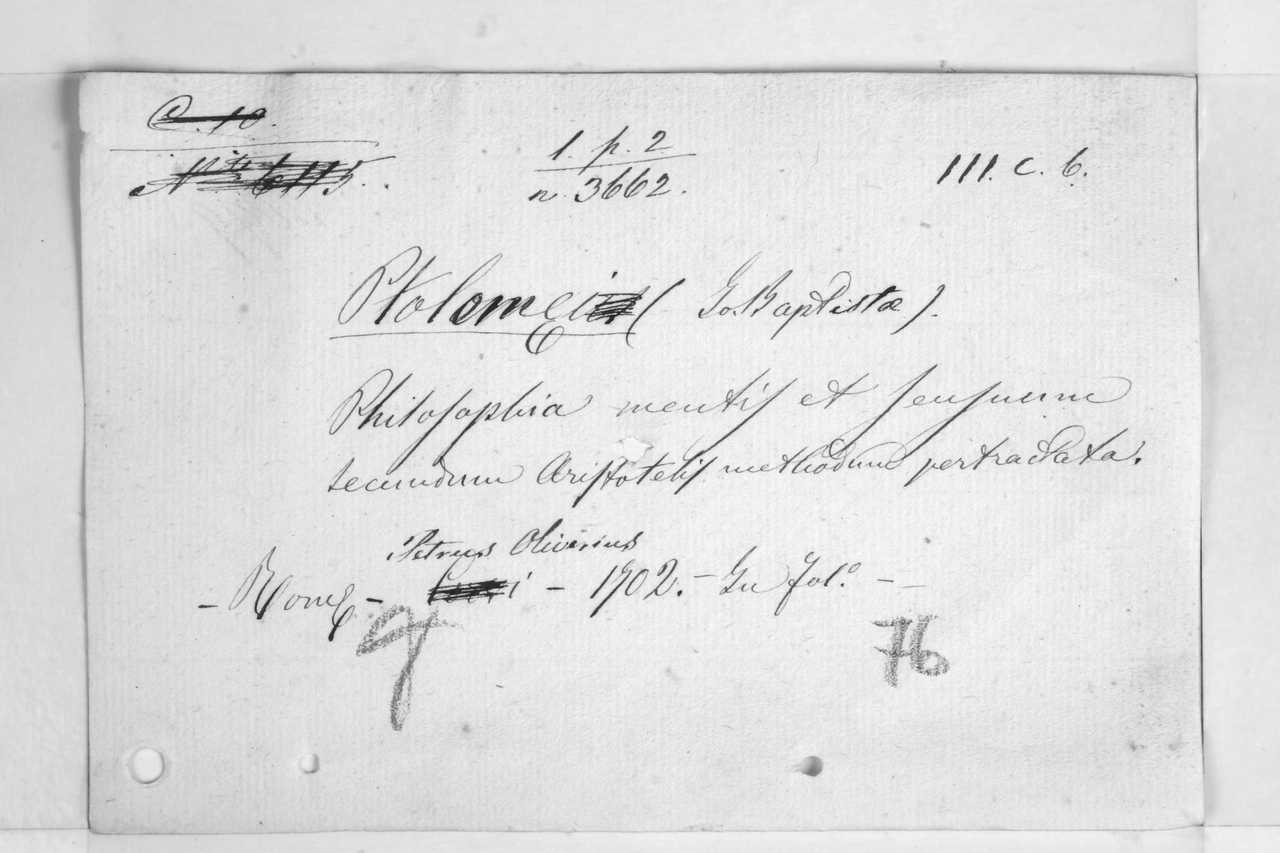 C. 10.
1. p. 2
n. 3662.
III. c. 6.
Ptolemei ( Jo Baptistæ ).
Philosophia mentis et sensuum
secundum Aristotelis methodum pertractata.
Petrus Oliverius
– Romę – – 1702. – In fol.º –
76